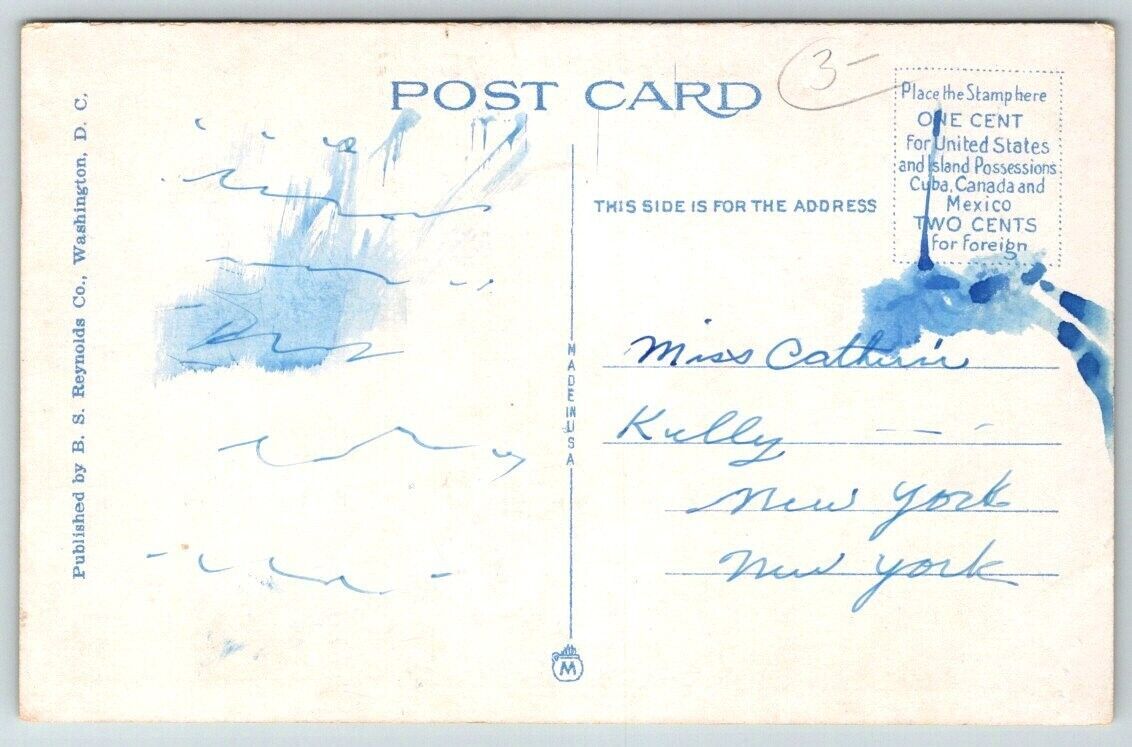 POST CARD
3-
Place the Stamp here
ONE CENT
For United States
and Island Possessions
Cuba, Canada and
Mexico
TWO CENTS
for Foreign
THIS SIDE IS FOR THE ADDRESS
Published by B. S. Reynolds Co., Washington, D. C.
MADE IN USA
Miss Catherin
Kelly
New York
New York
M